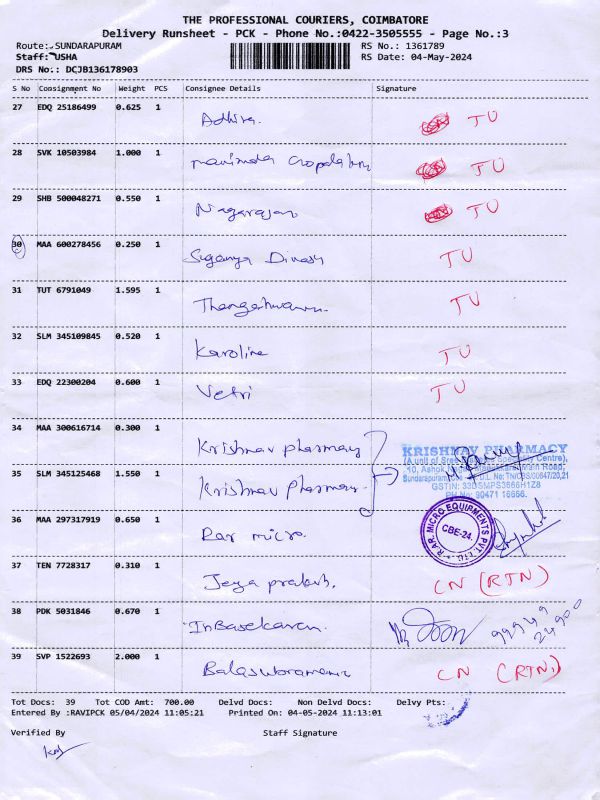 THE PROFESSIONAL COURIERS, COIMBATORE
Delivery Runsheet - PCK - Phone No.:0422-3505555 - Page No.:3
Route: SUNDARAPURAM RS No.: 1361789
Staff: USHA RS Date: 04-May-2024
DRS No.: DCJB136178903
S No Consignment No Weight PCS Consignee Details Signature
27 EDQ 25186499 0.625 1 Adhira. TU
28 SVK 10503984 1.000 1 TU
29 SHB 500048271 0.550 1 Nagarajan TU
30 MAA 600278456 0.250 1 Suganya Dinesh TU
31 TUT 6791049 1.595 1 TU
32 SLM 345109845 0.520 1 Karoline TU
33 EDQ 22300204 0.600 1 Vetri TU
34 MAA 300616714 0.300 1 Krishnav pharmacy
KRISHNAV PHARMACY
35 SLM 345125468 1.550 1 Krishnav pharmacy.
GSTIN:
PH No: 90471 16666.
36 MAA 297317919 0.650 1 Rar micro.
R.A.R. MICRO EQUIPMENTS PVT. LTD.
CBE-24.
37 TEN 7728317 0.310 1 Jeya prakash. CN (RTN)
38 PDK 5031846 0.670 1 Inbasekaran. 99949 24900
39 SVP 1522693 2.000 1 CN (RTN)
Tot Docs: 39 Tot COD Amt: 700.00 Delvd Docs: Non Delvd Docs: Delvy Pts:
Entered By :RAVIPCK 05/04/2024 11:05:21 Printed On: 04-05-2024 11:13:01
Verified By Staff Signature